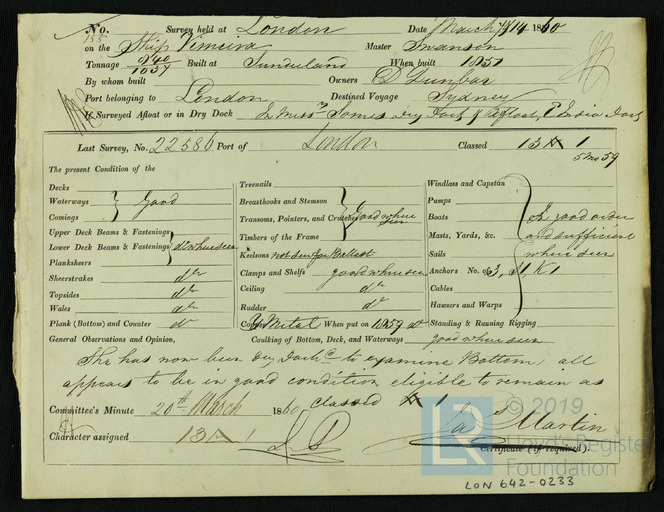 No. 155 Survey held at London Date March 14 1860
on the Ship Vimeira Master Swanson
Tonnage 940 / 1037 Built at Sunderland When built 1851
By whom built Owners D Dunbar
Port belonging to London Destined Voyage Sydney
If Surveyed Afloat or in Dry Dock In Messrs Somes Dry Dock & Afloat, E India Dock
Last Survey, No. 22586 Port of London Classed 13 A 1
5 Mo 59
The present Condition of the
Decks
Waterways Good
Comings
Upper Deck Beams & Fastenings
Lower Deck Beams & Fastenings do where seen
Planksheers
Sheerstrakes do
Topsides do
Wales do
Plank (Bottom) and Counter do
Treenails
Breasthooks and Stemson
Transoms, Pointers, and Crutches Good where seen
Timbers of the Frame
Keelsons not seen for Ballast
Clamps and Shelfs good where seen
Ceiling do
Rudder do
Copper Y Metal When put on 1859
Caulking of Bottom, Deck, and Waterways good where seen
Windlass and Capstan
Pumps
Boats In good order
Masts, Yards, &c. and sufficient
Sails where seen
Anchors No. of 3, 1 K 1
Cables
Hawsers and Warps
Standing & Running Rigging
General Observations and Opinion,
She has now been Dry Docked to examine Bottom, all
appears to be in good condition eligible to remain as
classed A 1
Committee's Minute 20th March 1860
Character assigned 13 A 1
Jas Martin
Certificate (if required).
© 2019
LR
Lloyd's Register
Foundation
LON 642-0233